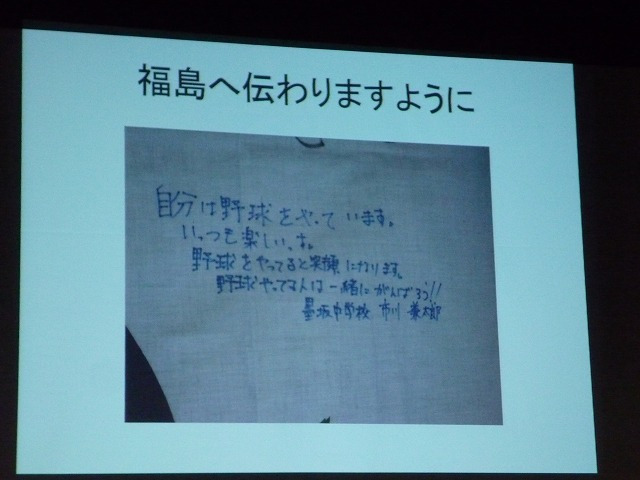 福島へ伝わりますように
自分は野球をやっています。
いっつも楽しいっす。
野球をやってると笑顔になります。
野球やってる人は一緒にがんばろう!!
墨坂中学校 市川 太郎